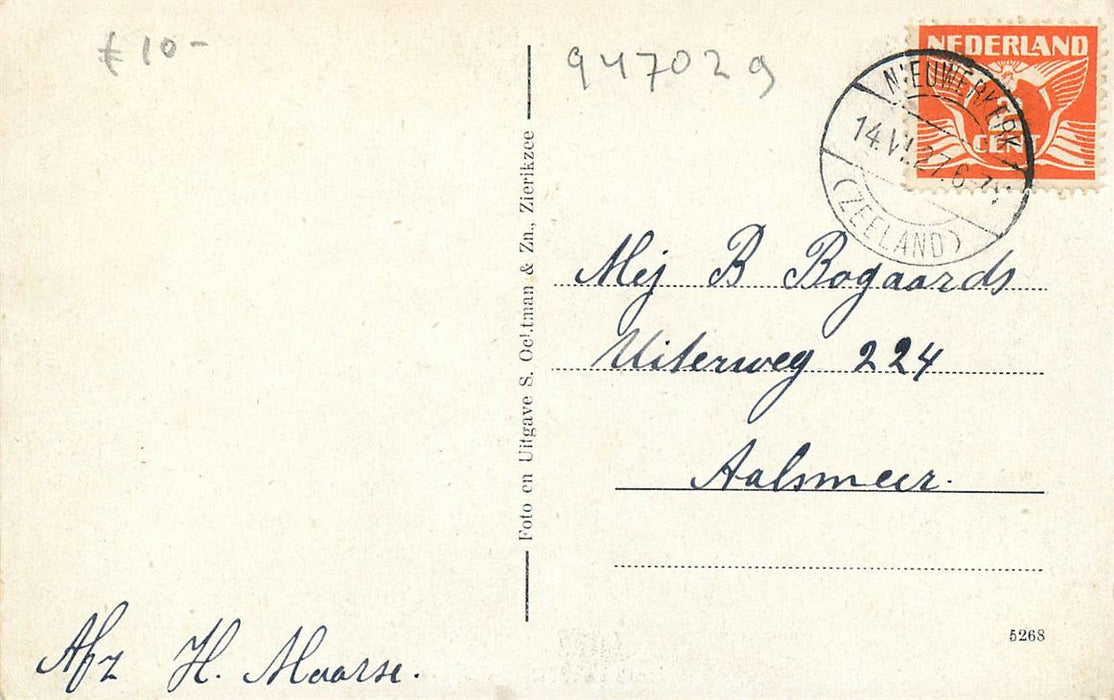 £ 10-
947029
NEDERLAND
2 CENT
NIEUWERKERK
14.VI.27.6-7V
(ZEELAND)
Mej B Bogaards
Uiterweg 224
Aalsmeer.
Foto en Uitgave S. Ochtman & Zn., Zierikzee
5268
Afz H. Maarse.